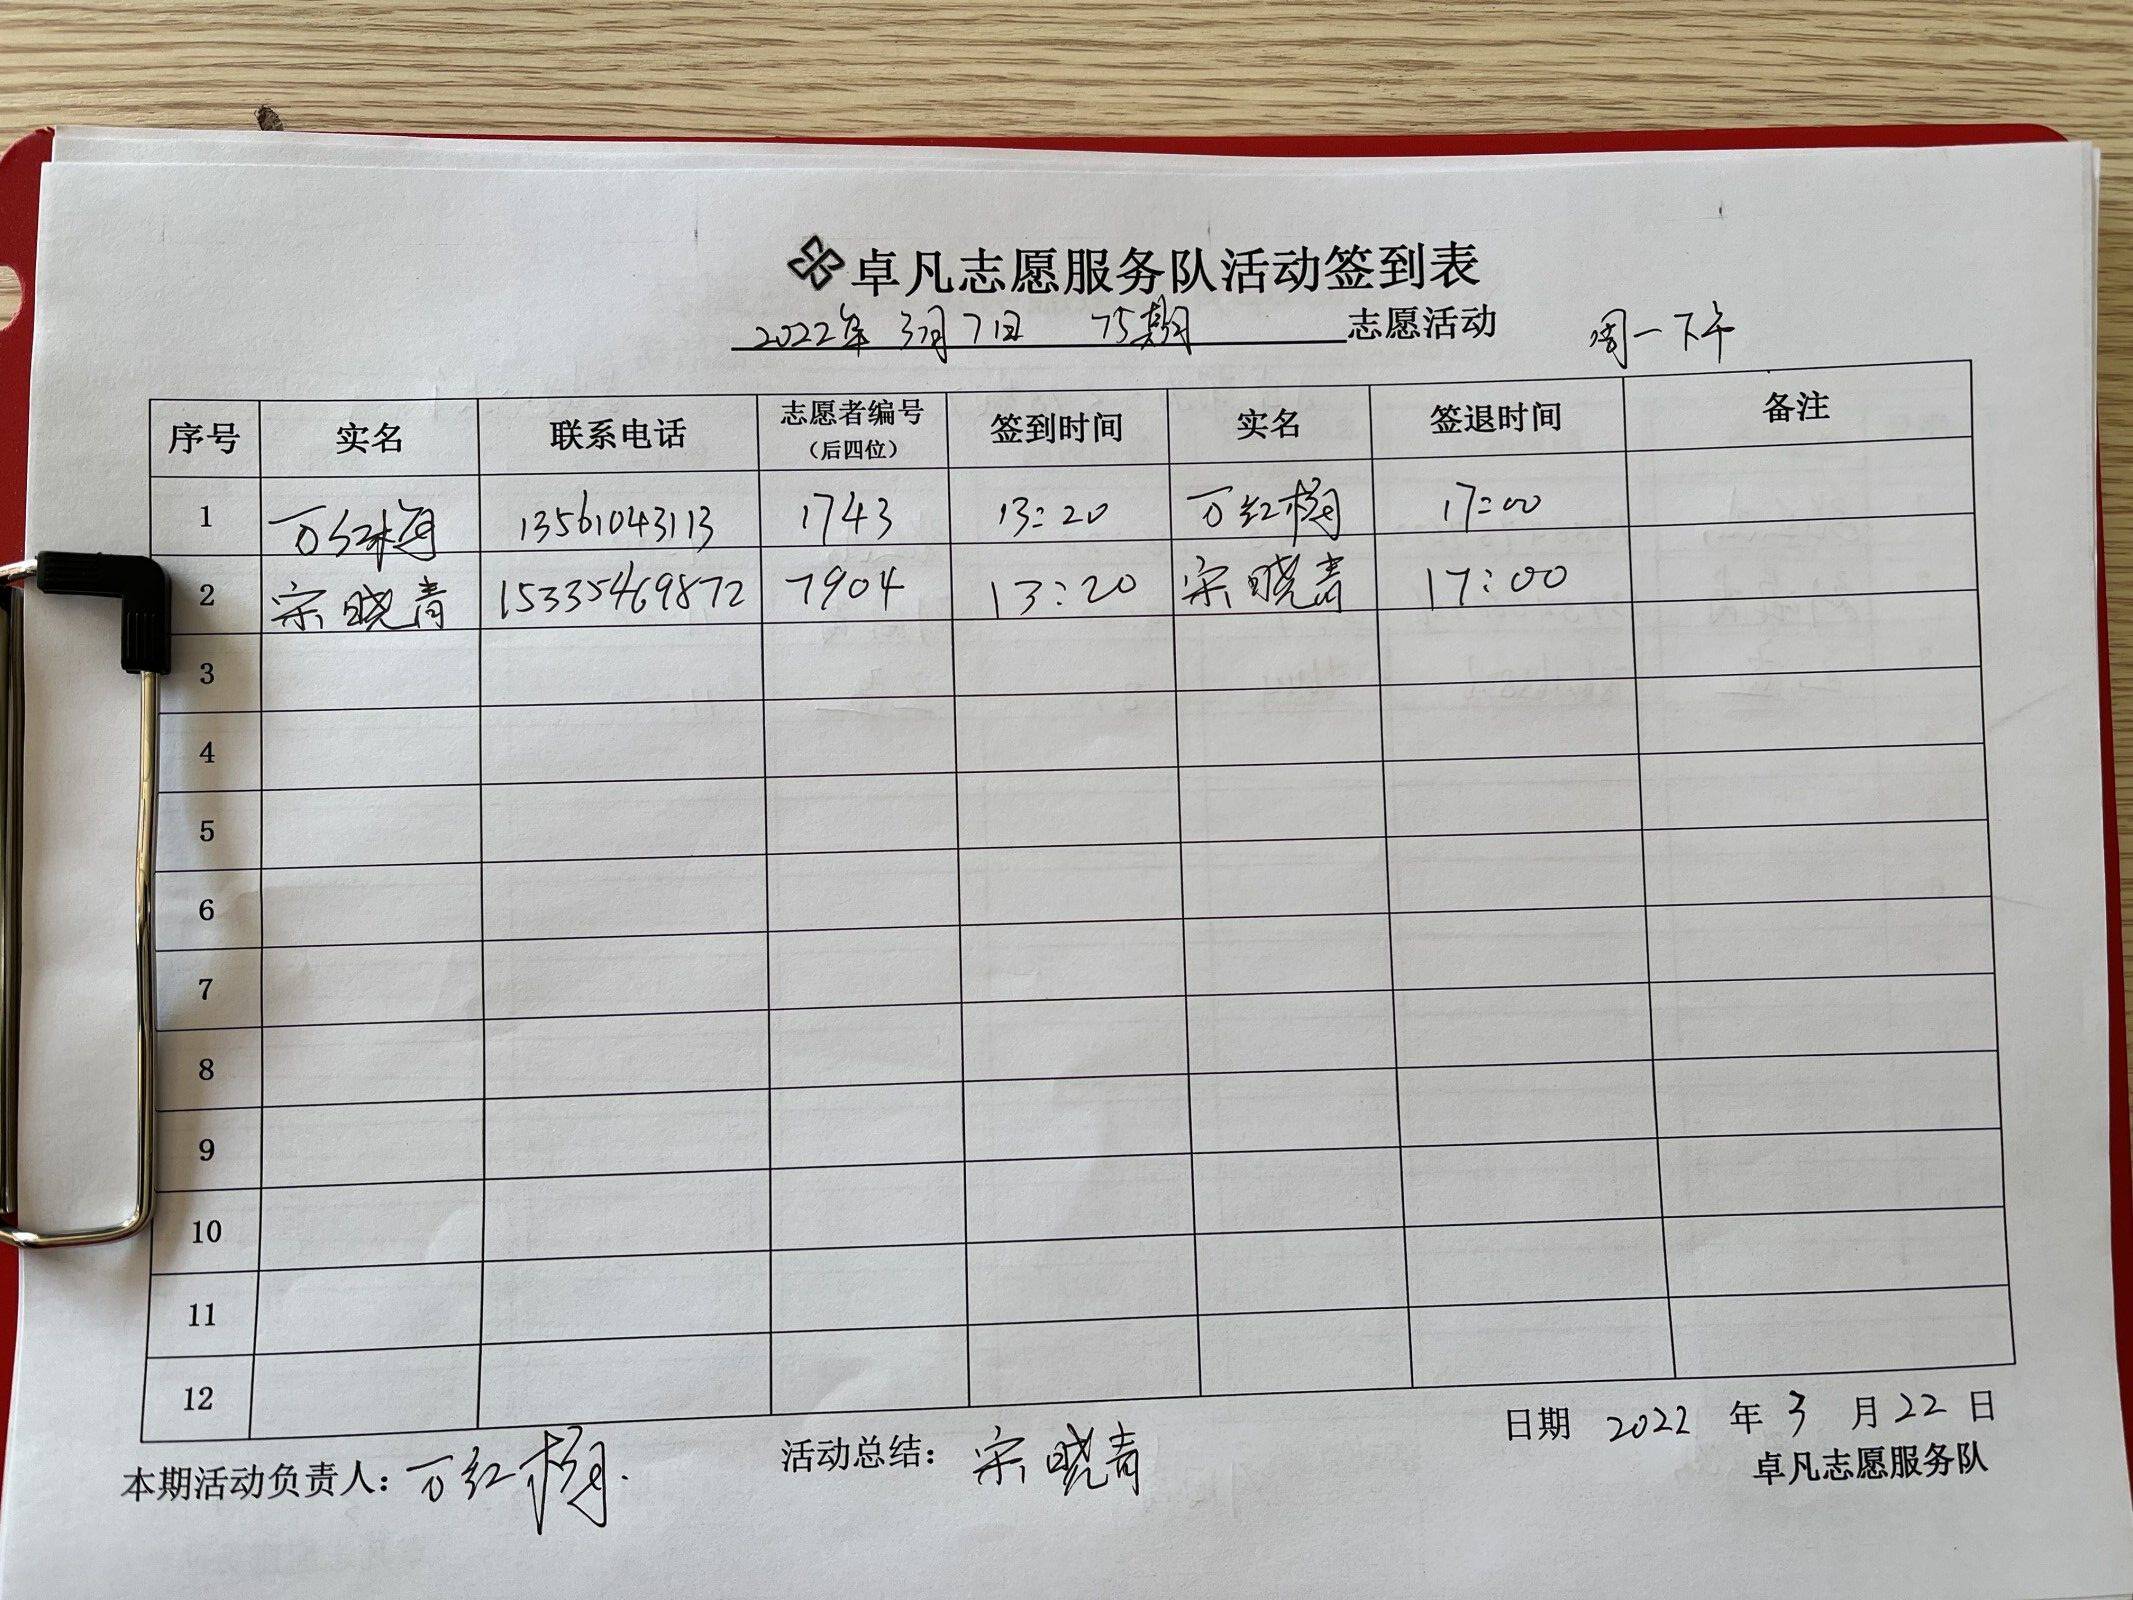 卓凡志愿服务队活动签到表
2022年 3月7日 75期 志愿活动 周一下午
序号 实名 联系电话 志愿者编号（后四位） 签到时间 实名 签退时间 备注
1 万红梅 13561043113 1743 13:20 万红梅 17:00
2 宋晓青 15335469872 7904 13:20 宋晓青 17:00
3
4
5
6
7
8
9
10
11
12
本期活动负责人：万红梅. 活动总结：宋晓青 日期 2022 年 3 月 22 日
卓凡志愿服务队